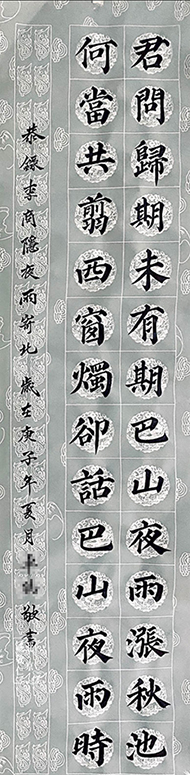 君問歸期未有期巴山夜雨漲秋池
何當共翦西窗燭卻話巴山夜雨時
恭錄李商隱夜雨寄北歲在庚子年夏月敬書